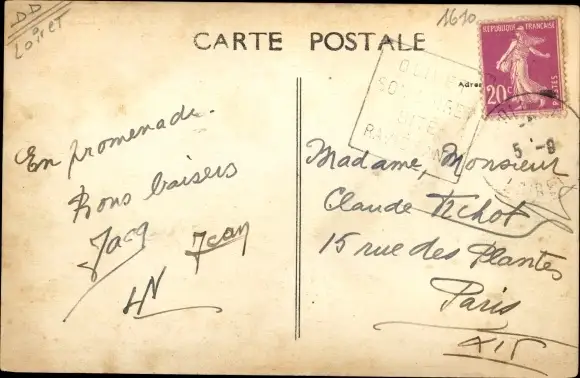 DD
Loiret
1610
CARTE POSTALE
RÉPUBLIQUE FRANÇAISE
20c
POSTES
En promenade.
Bons baisers
Jacq Jean
Madame, Monsieur
Claude Tichot
15 rue des Plantes
Paris
XIV